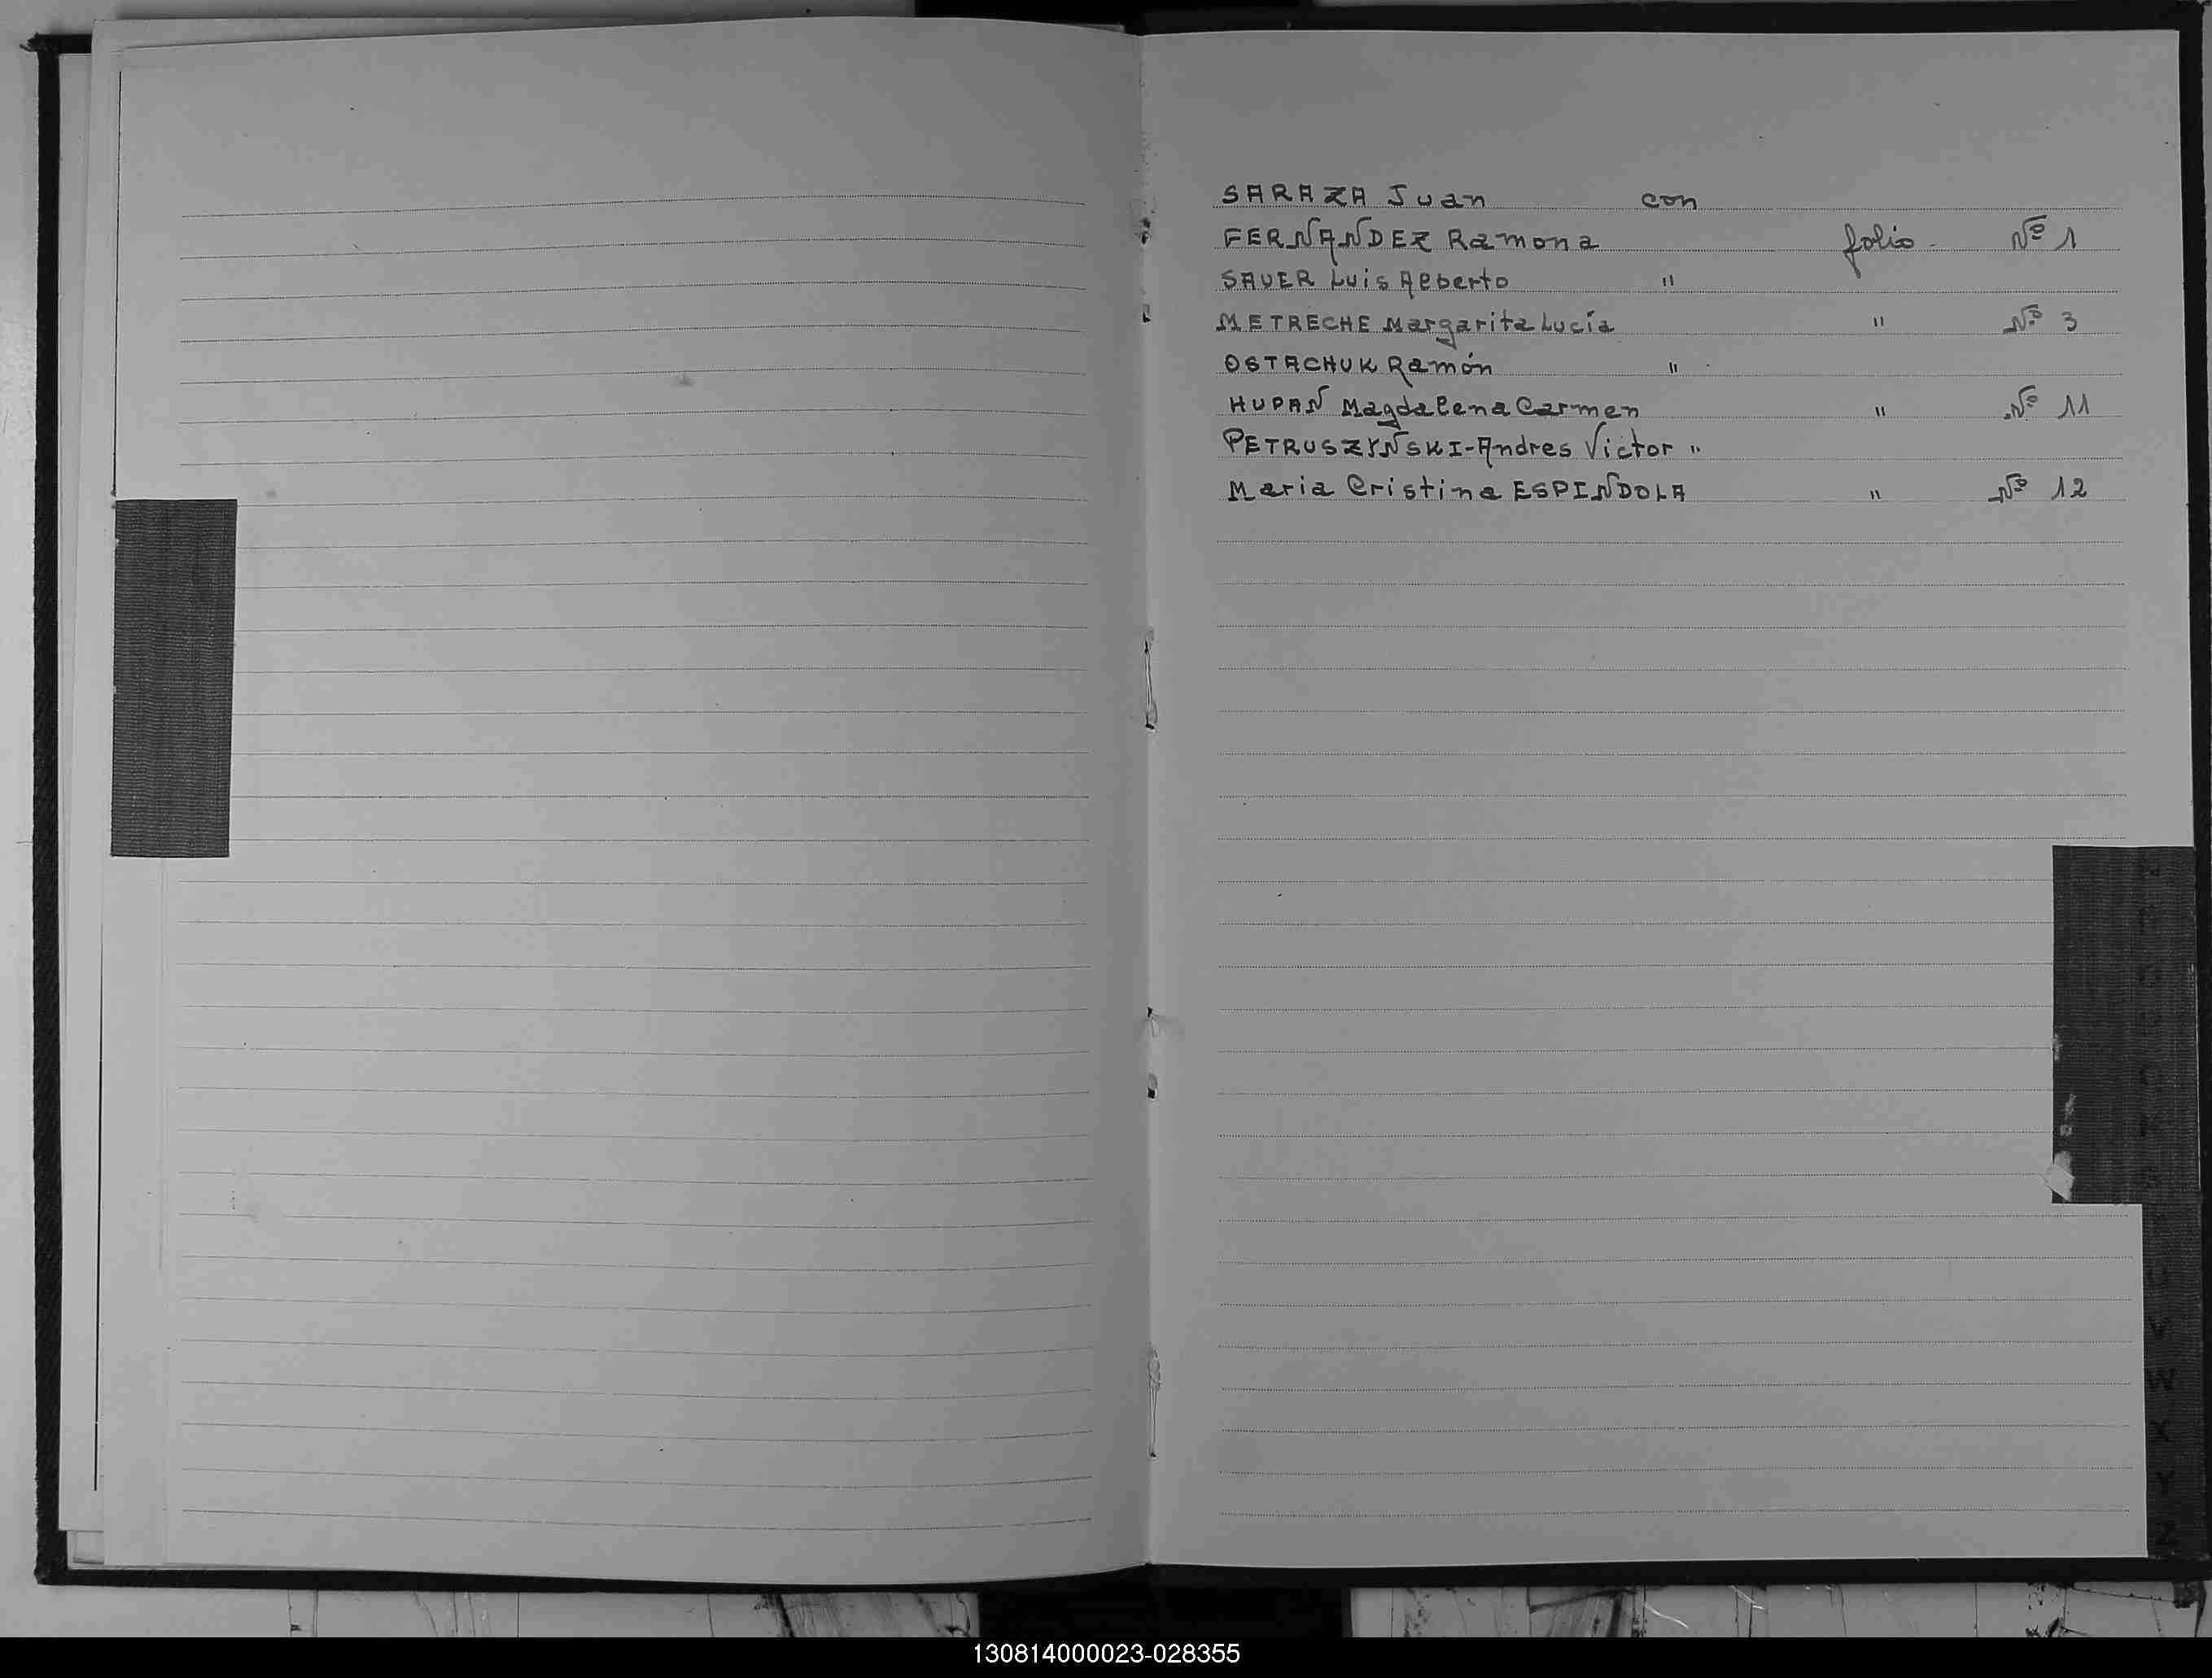 SARAZA Juan con
FERNANDEZ Ramona folio - Nº 1
SAUER Luis Alberto "
METRECHE Margarita Lucía " Nº 3
OSTACHUK Ramón "
HUPAN Magdalena Carmen " Nº 11
PETRUSZYNSKI-Andres Victor "
Maria Cristina ESPINDOLA " Nº 12
V
W
X
Y
Z
130814000023-028355